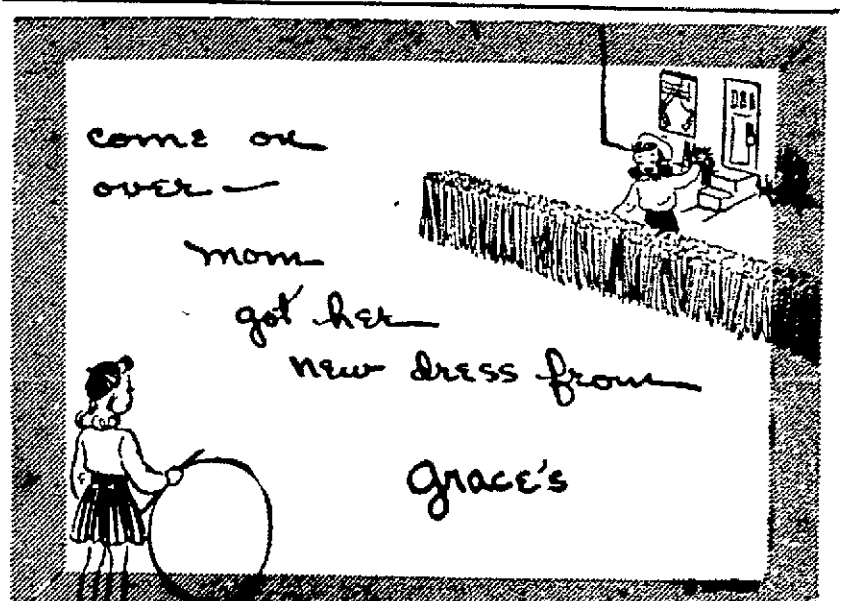 come on
over —
mom
got her
new dress from
Grace's